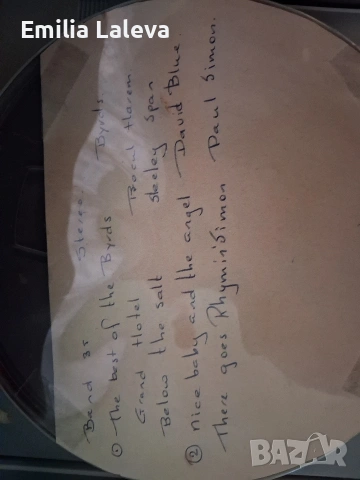 Emilia Laleva
Band 35 Stereo.
① The best of the Byrds Byrds
Grand Hotel Procul Harem
Below the salt Steeley Span
② Nice baby and the angel David Blue
There goes Rhymin' Simon Paul Simon.
BAZAR